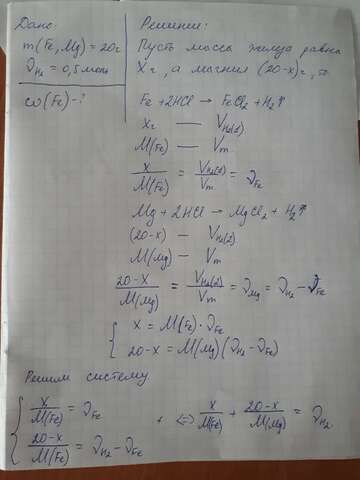 Дано:
m(Fe, Mg) = 20г
ν H₂ = 0,5 моль
ω(Fe) - ?
Решение:
Пусть масса железа равна
Xг, а магния (20-x)г,
Fe + 2HCl → FeCl₂ + H₂↑
Xг — V H₂(1)
M(Fe) — Vm
x/M(Fe) = V H₂(1)/Vm = ν Fe
Mg + 2HCl → MgCl₂ + H₂↑
(20-x) — V H₂(2)
M(Mg) — Vm
20-x/M(Mg) = V H₂(2)/Vm = ν Mg = ν H₂ - ν Fe
{ x = M(Fe) · ν Fe
20-x = M(Mg) (ν H₂ - ν Fe)
Решим систему
{ x/M(Fe) = ν Fe
20-x/M(Fe) = ν H₂ - ν Fe
+ <=> x/M(Fe) + 20-x/M(Mg) = ν H₂